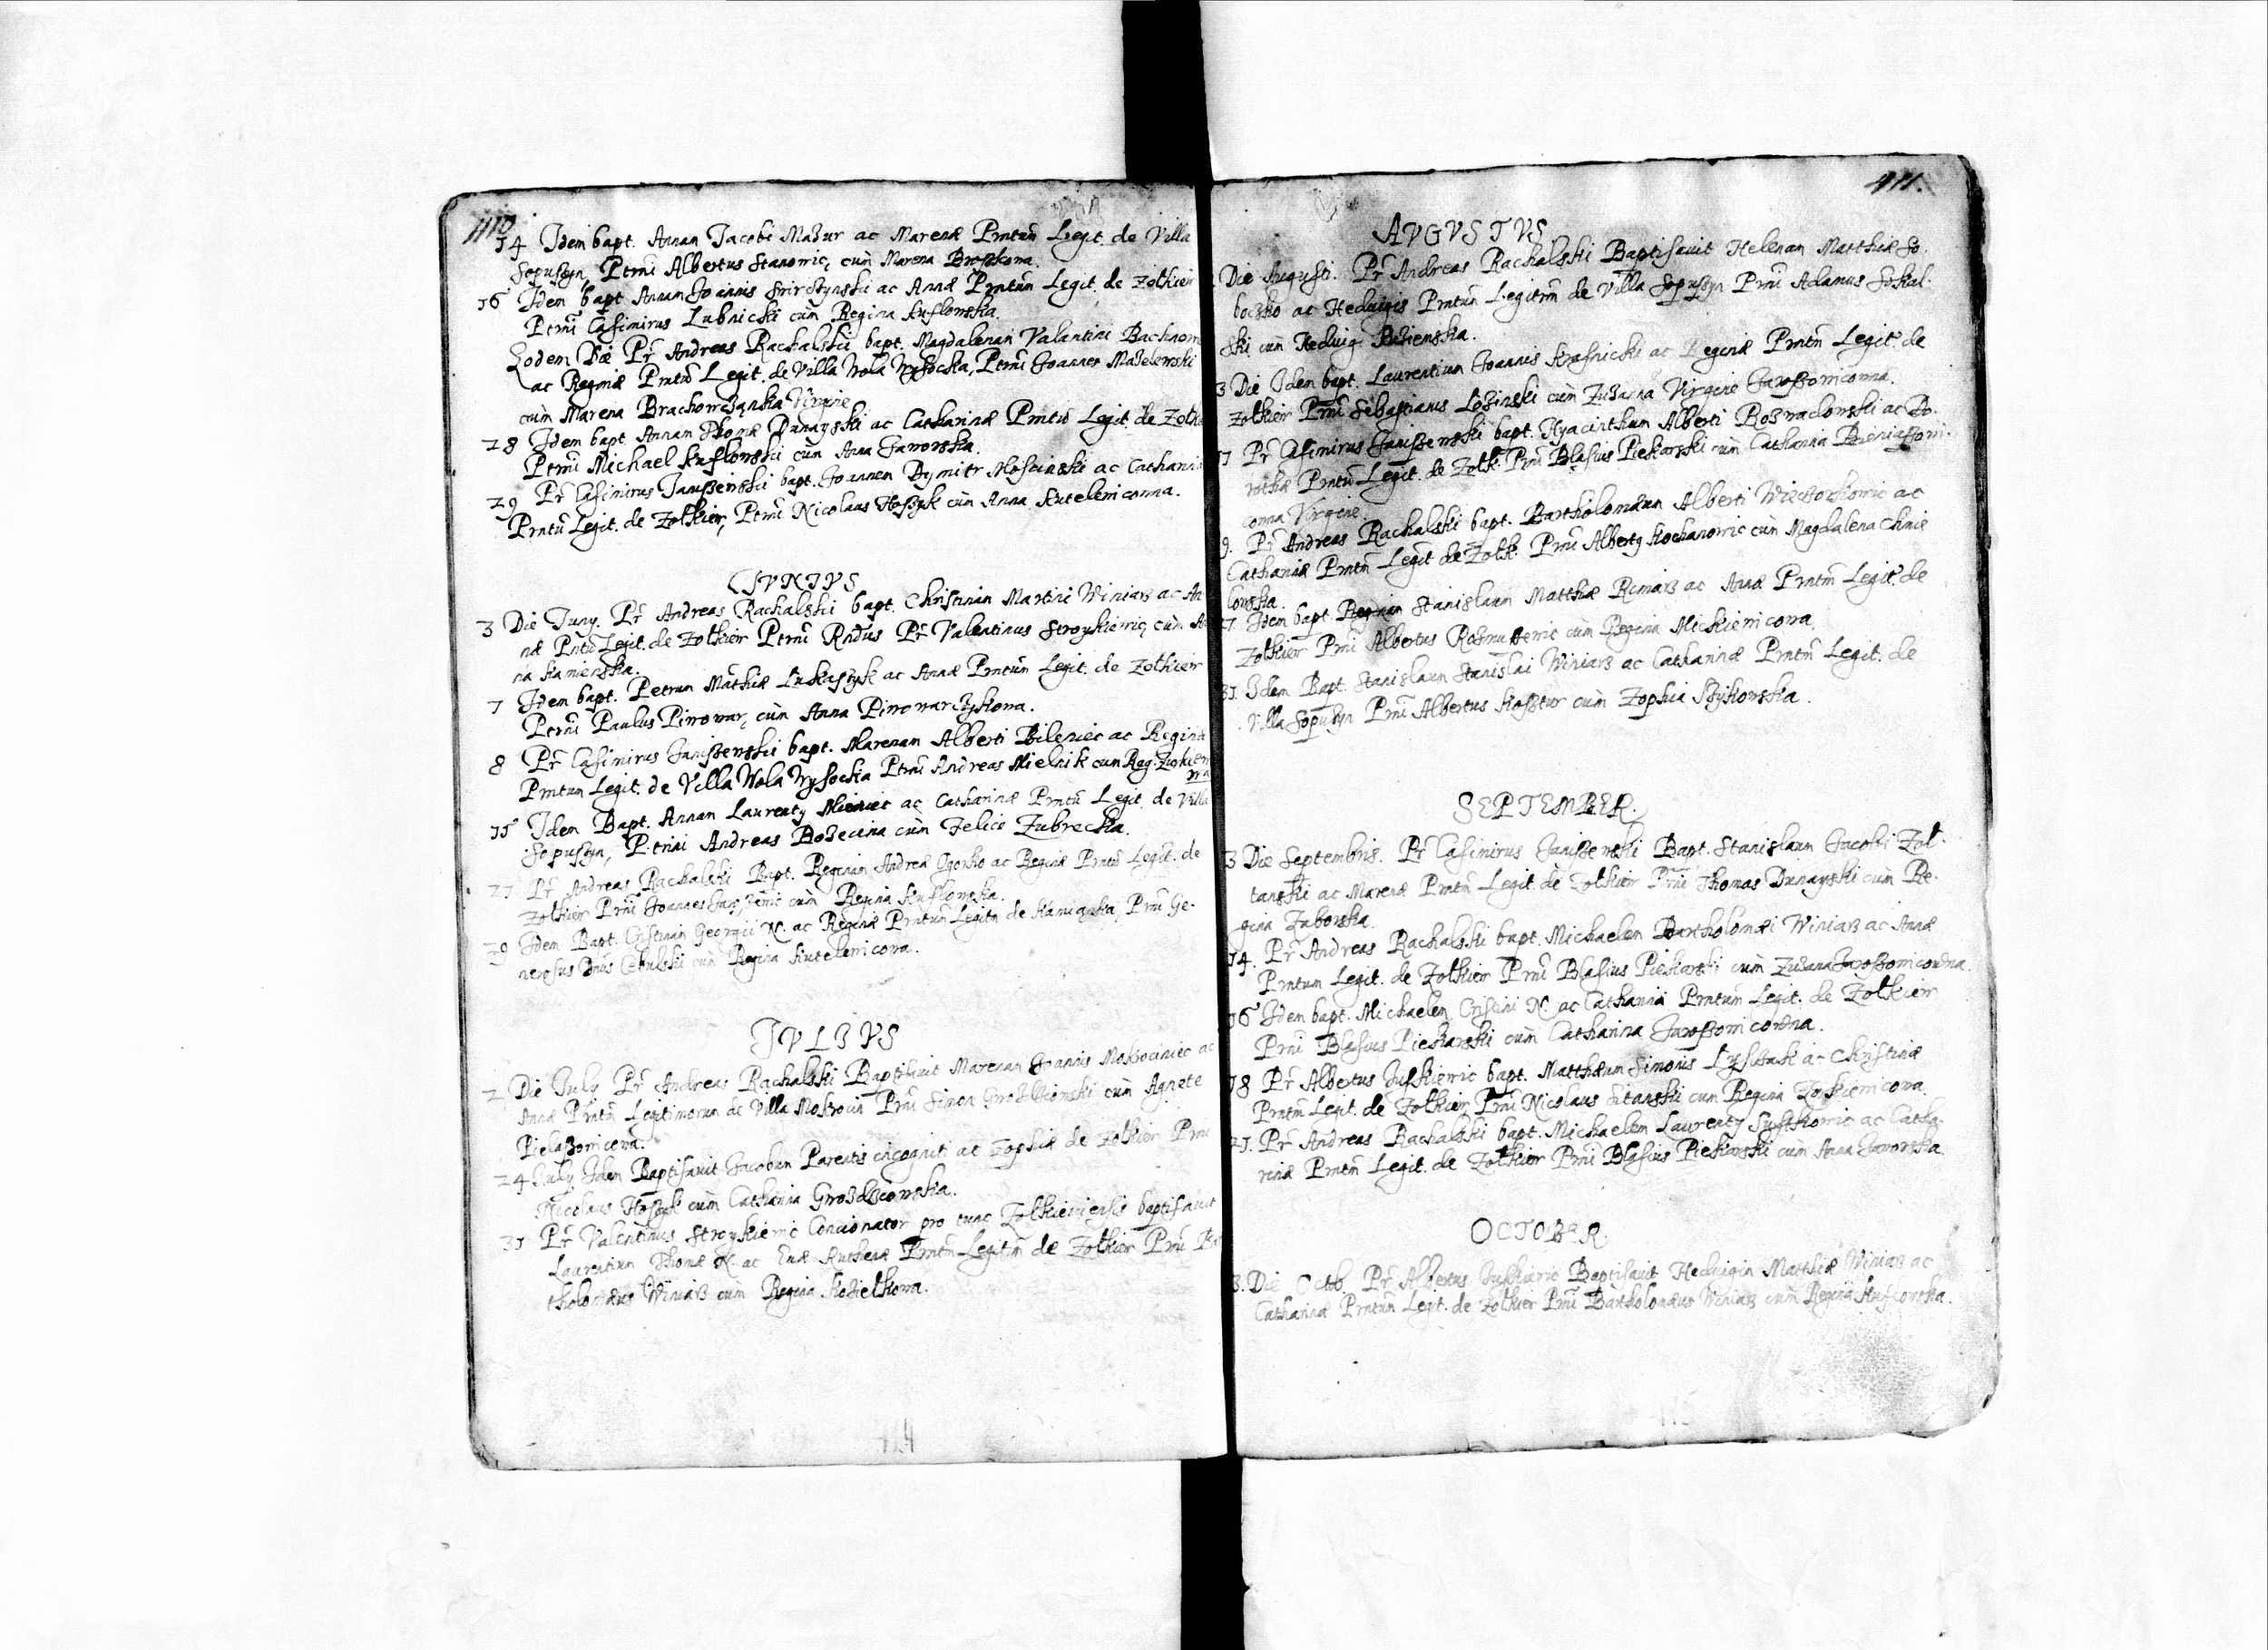 1110
14 Idem bapt. Annam Jacobi Mazur ac Marenæ Prntum Legit. de Villa
Sopuszyn, Ptrni Albertus Stanowic, cum Marena
16 Idem bapt. Annam Joannis ac Annæ Prntum Legit. de Zolkiew
Ptrni Casimirus Lubnicki cum Regina Kuflowska.
Eodem Die Pr Andreas Rachalski bapt. Magdalenam Valantini
ac Reginæ Prntu Legit. de Villa Wola Wysocka, Ptrni Joannes Mazelewski
cum Marena Virgine
28 Idem bapt. Annam Thomæ Dunayski ac Catharinæ Prntu Legit. de
Ptrni Michael Kuflowski cum Anna Jaworska.
29 Pr Casimirus Janiszewski bapt. Joannem Dymitr ac
Prntu Legit. de Zolkiew, Ptrni Nicolaus Hoszyk cum Anna Kutelewicowna.
IVNIVS
3 Die Juny. Pr Andreas Rachalski bapt. Christinam Martini Winiarz ac An
næ Pntu Legit. de Zolkiew Ptrni Rndus Pr Valentinus Stroykiewic, cum An
na Kamienska.
7 Idem bapt. Petrum Mathiæ Lukaszyk ac Annæ Prntum Legit. de Zolkiew
Ptrni Paulus Piwowar, cum Anna Piwowarczykowa.
8 Pr Casimirus Janiszewski bapt. Marenam Alberti Bileniec ac Reginæ
Prntum Legit. de Villa Wola Wysocka Ptrni Andreas Mielnik cum Reg.
15 Idem Bapt. Annam Laurenty ac Catharinæ Prntu Legit. de Villa
Sopuszyn, Ptrini Andreas cum Felice Zubrecka.
27 Pr Andreas Rachalski Bapt. Reginam Andreæ Ogorko ac Reginæ Prntu Legit. de
Zolkiew Prni Joannes cum Regina Kuflowska.
29 Idem Bapt. Cristinam Georgii N. ac Reginæ Prntum Legitm de Prni Ge-
nerosus Dnus Cebulski cum Regina Kutelewicowa.
IVLIVS
2 Die July Pr Andreas Rachalski Baptisavit Marenam Joannis ac
Annæ Prntm Legitimorum de Villa Mokrocin Prni Simon cum Agnete
24 July Idem Baptisavit Jacobum Parentis incogniti ac Zophiæ de Zolkiew Prni
Nicolaus Hoszyk cum Catharina
31 Pr Valentinus Stroykiewic Concionator pro tunc Zolkieviensis baptisavit
Laurentium Thomæ N. ac Evæ Ruthenæ Prntm Legitim de Zolkiew Prni Bar
tholomæus Winiarz cum Regina Kozielkowa.
411.
AVGVSTVS
Die Augusti. Pr Andreas Rachalski Baptisavit Helenam Matthiæ So-
ac Hedvigis Prntum Legitim de Villa Sopuszyn Prni Adamus Sokal-
ski cum Hedvig
3 Die Idem bapt. Laurentium Joannis Krasnicki ac Reginæ Prntm Legit. de
Zolkiew Prni Sebastianus Lozinski cum Zuzanna Virgine Jaroszowicowna.
Pr Casimirus Janiszewski bapt. Hyacinthum Alberti ac Do-
rotheæ Prntu Legit. de Zolk. Prni Blasius Piekarski cum Catharina Bieniaszow-
cowna Virgine.
9. Pr Andreas Rachalski bapt. Bartholomæum Alberti ac
Catharinæ Prntm Legit de Zolk. Prni Albertus Kochanowic cum Magdalena Chmie
lowska.
27. Idem bapt. Reginam Stanislaum Matthæ Rimarz ac Annæ Prntm Legit. de
Zolkiew Prni Albertus cum Regina Mickiewicowa.
31. Idem Bapt. Stanislaum Stanislai Winiarz ac Catharinæ Prntm Legit. de
Villa Sopuszyn Prni Albertus Kosztur cum Zophia
SEPTEMBER.
3 Die Septembris. Pr Casimirus Janiszewski Bapt. Stanislaum Jacobi Zol-
tanski ac Marenæ Prntm Legit. de Zolkiew Prni Thomas Dunayski cum Re-
gina Zaborska.
14. Pr Andreas Rachalski bapt. Michaelem Bartholomæi Winiarz ac Annæ
Prntum Legit. de Zolkiew Prni Blasius Piekarski cum Zuzana Jaroszowicowna.
16 Idem bapt. Michaelem Cristini N. ac Catharinæ Prntum Legit. de Zolkiew
Prni Blasius Piekarski cum Catharina Jaroszowicowna.
18 Pr Albertus Juskiewic bapt. Matthæum Simonis ac Christinæ
Prntm Legit. de Zolkiew Prni Nicolaus Sitanski cum Regina
21. Pr Andreas Rachalski bapt. Michaelem Laurenty ac Catha-
rinæ Prntm Legit. de Zolkiew Prni Blasius Piekarski cum Anna Jaworska.
OCTOBER.
3. Die Octob. Pr Albertus Juskiewic Baptisavit Hedvigim Matthiæ Winiarz ac
Catharinæ Prntum Legit. de Zolkiew Prni Bartholomæus Winiarz cum Regina Kuflowska.